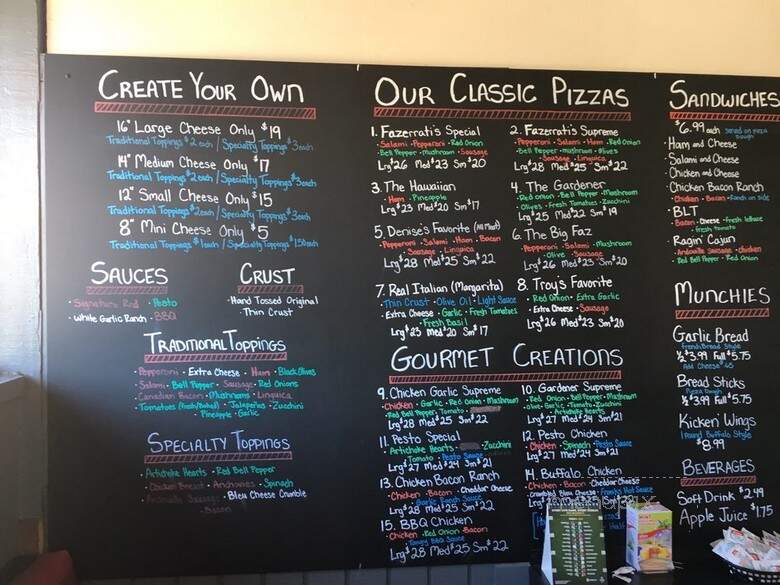 CREATE YOUR OWN
16" Large Cheese Only $19
Traditional Toppings $2 each / Specialty Toppings $3 each
14" Medium Cheese Only $17
Traditional Toppings $2 each / Specialty Toppings $3 each
12" Small Cheese Only $15
Traditional Toppings $2 each / Specialty Toppings $3 each
8" Mini Cheese Only $5
Traditional Toppings $1 each / Specialty Toppings $1.50 each
SAUCES
• Signature Red • Pesto
• White Garlic Ranch • BBQ
CRUST
• Hand Tossed Original
Thin Crust
TRADITIONAL TOPPINGS
• Pepperoni • Extra Cheese • Ham • Black Olives
• Salami • Bell Pepper • Sausage • Red Onions
• Canadian Bacon • Mushrooms • Linguica
• Tomatoes • Jalapeños • Zucchini
• Pineapple • Garlic
SPECIALTY TOPPINGS
• Artichoke Hearts • Red Bell Pepper
• Chicken Breast • Anchovies • Spinach
• Andouille Sausage • Bleu Cheese Crumble
• Bacon
OUR CLASSIC PIZZAS
1. Fazerrati's Special
• Salami • Pepperoni • Red Onion
• Bell Pepper • mushroom • Sausage
Lrg $26 Med $23 Sm $20
2. Fazerrati's Supreme
• Pepperoni • Salami • Ham • Red Onion
• Bell Pepper • mushroom • Olives
• Sausage • Linguica
Lrg $28 Med $25 Sm $22
3. The Hawaiian
• Ham • Pineapple
Lrg $23 Med $20 Sm $17
4. The Gardener
• Red Onion • Bell Pepper • Mushroom
• Olives • Fresh Tomatoes • Zucchini
Lrg $25 Med $22 Sm $19
5. Denise's Favorite (All Meat)
• Pepperoni • Salami • Ham • Bacon
• Sausage • Linguica
Lrg $28 Med $25 Sm $22
6. The Big Faz
• Pepperoni • Salami • Mushroom
• Olive • Sausage
Lrg $26 Med $23 Sm $20
7. Real Italian (Margarita)
• Thin Crust • Olive Oil • Light Sauce
• Extra Cheese • Garlic • Fresh Tomatoes
• Fresh Basil
Lrg $23 Med $20 Sm $17
8. Troy's Favorite
• Red Onion • Extra Garlic
• Extra Cheese • Sausage
Lrg $26 Med $23 Sm $20
GOURMET CREATIONS
9. Chicken Garlic Supreme
• Chicken • Garlic • Red Onion • Mushroom
• Red Bell Pepper • Tomato
Lrg $28 Med $25 Sm $22
10. Gardener Supreme
• Red Onion • Bell Pepper • Mushroom
• Olive • Garlic • Tomato • Zucchini
• Artichoke Hearts
Lrg $27 Med $24 Sm $21
11. Pesto Special
• Artichoke Hearts • Zucchini
• Tomato • Pesto Sauce
Lrg $27 Med $24 Sm $21
12. Pesto Chicken
• Chicken • Spinach • Pesto Sauce
Lrg $27 Med $24 Sm $21
13. Chicken Bacon Ranch
• Chicken • Bacon • Cheddar Cheese
• Garlic Ranch Sauce
Lrg $28 Med $25 Sm $22
14. Buffalo Chicken
• Chicken • Bacon • Cheddar Cheese
• Crumbled Bleu Cheese • Frank's Hot Sauce
15. BBQ Chicken
• Chicken • Red Onion • Bacon
• Tangy BBQ Sauce
Lrg $28 Med $25 Sm $22
Half
SANDWICHES
$6.99 each served on pizza dough
• Ham and Cheese
• Salami and Cheese
• Chicken and Cheese
• Chicken Bacon Ranch
• Chicken • Bacon • Ranch on side
• BLT
• Bacon • Cheese • fresh lettuce
• fresh tomato
• Ragin' Cajun
• Andouille Sausage • chicken
• Red Bell Pepper • Red Onion
MUNCHIES
Garlic Bread
French Bread Style
½ $3.99 Full $5.75
Add Cheese
Bread Sticks
Pizza Dough
½ $3.99 Full $5.75
Kicken' Wings
1 Pound Buffalo Style
$8.99
BEVERAGES
Soft Drink $2.49
Apple Juice $1.75